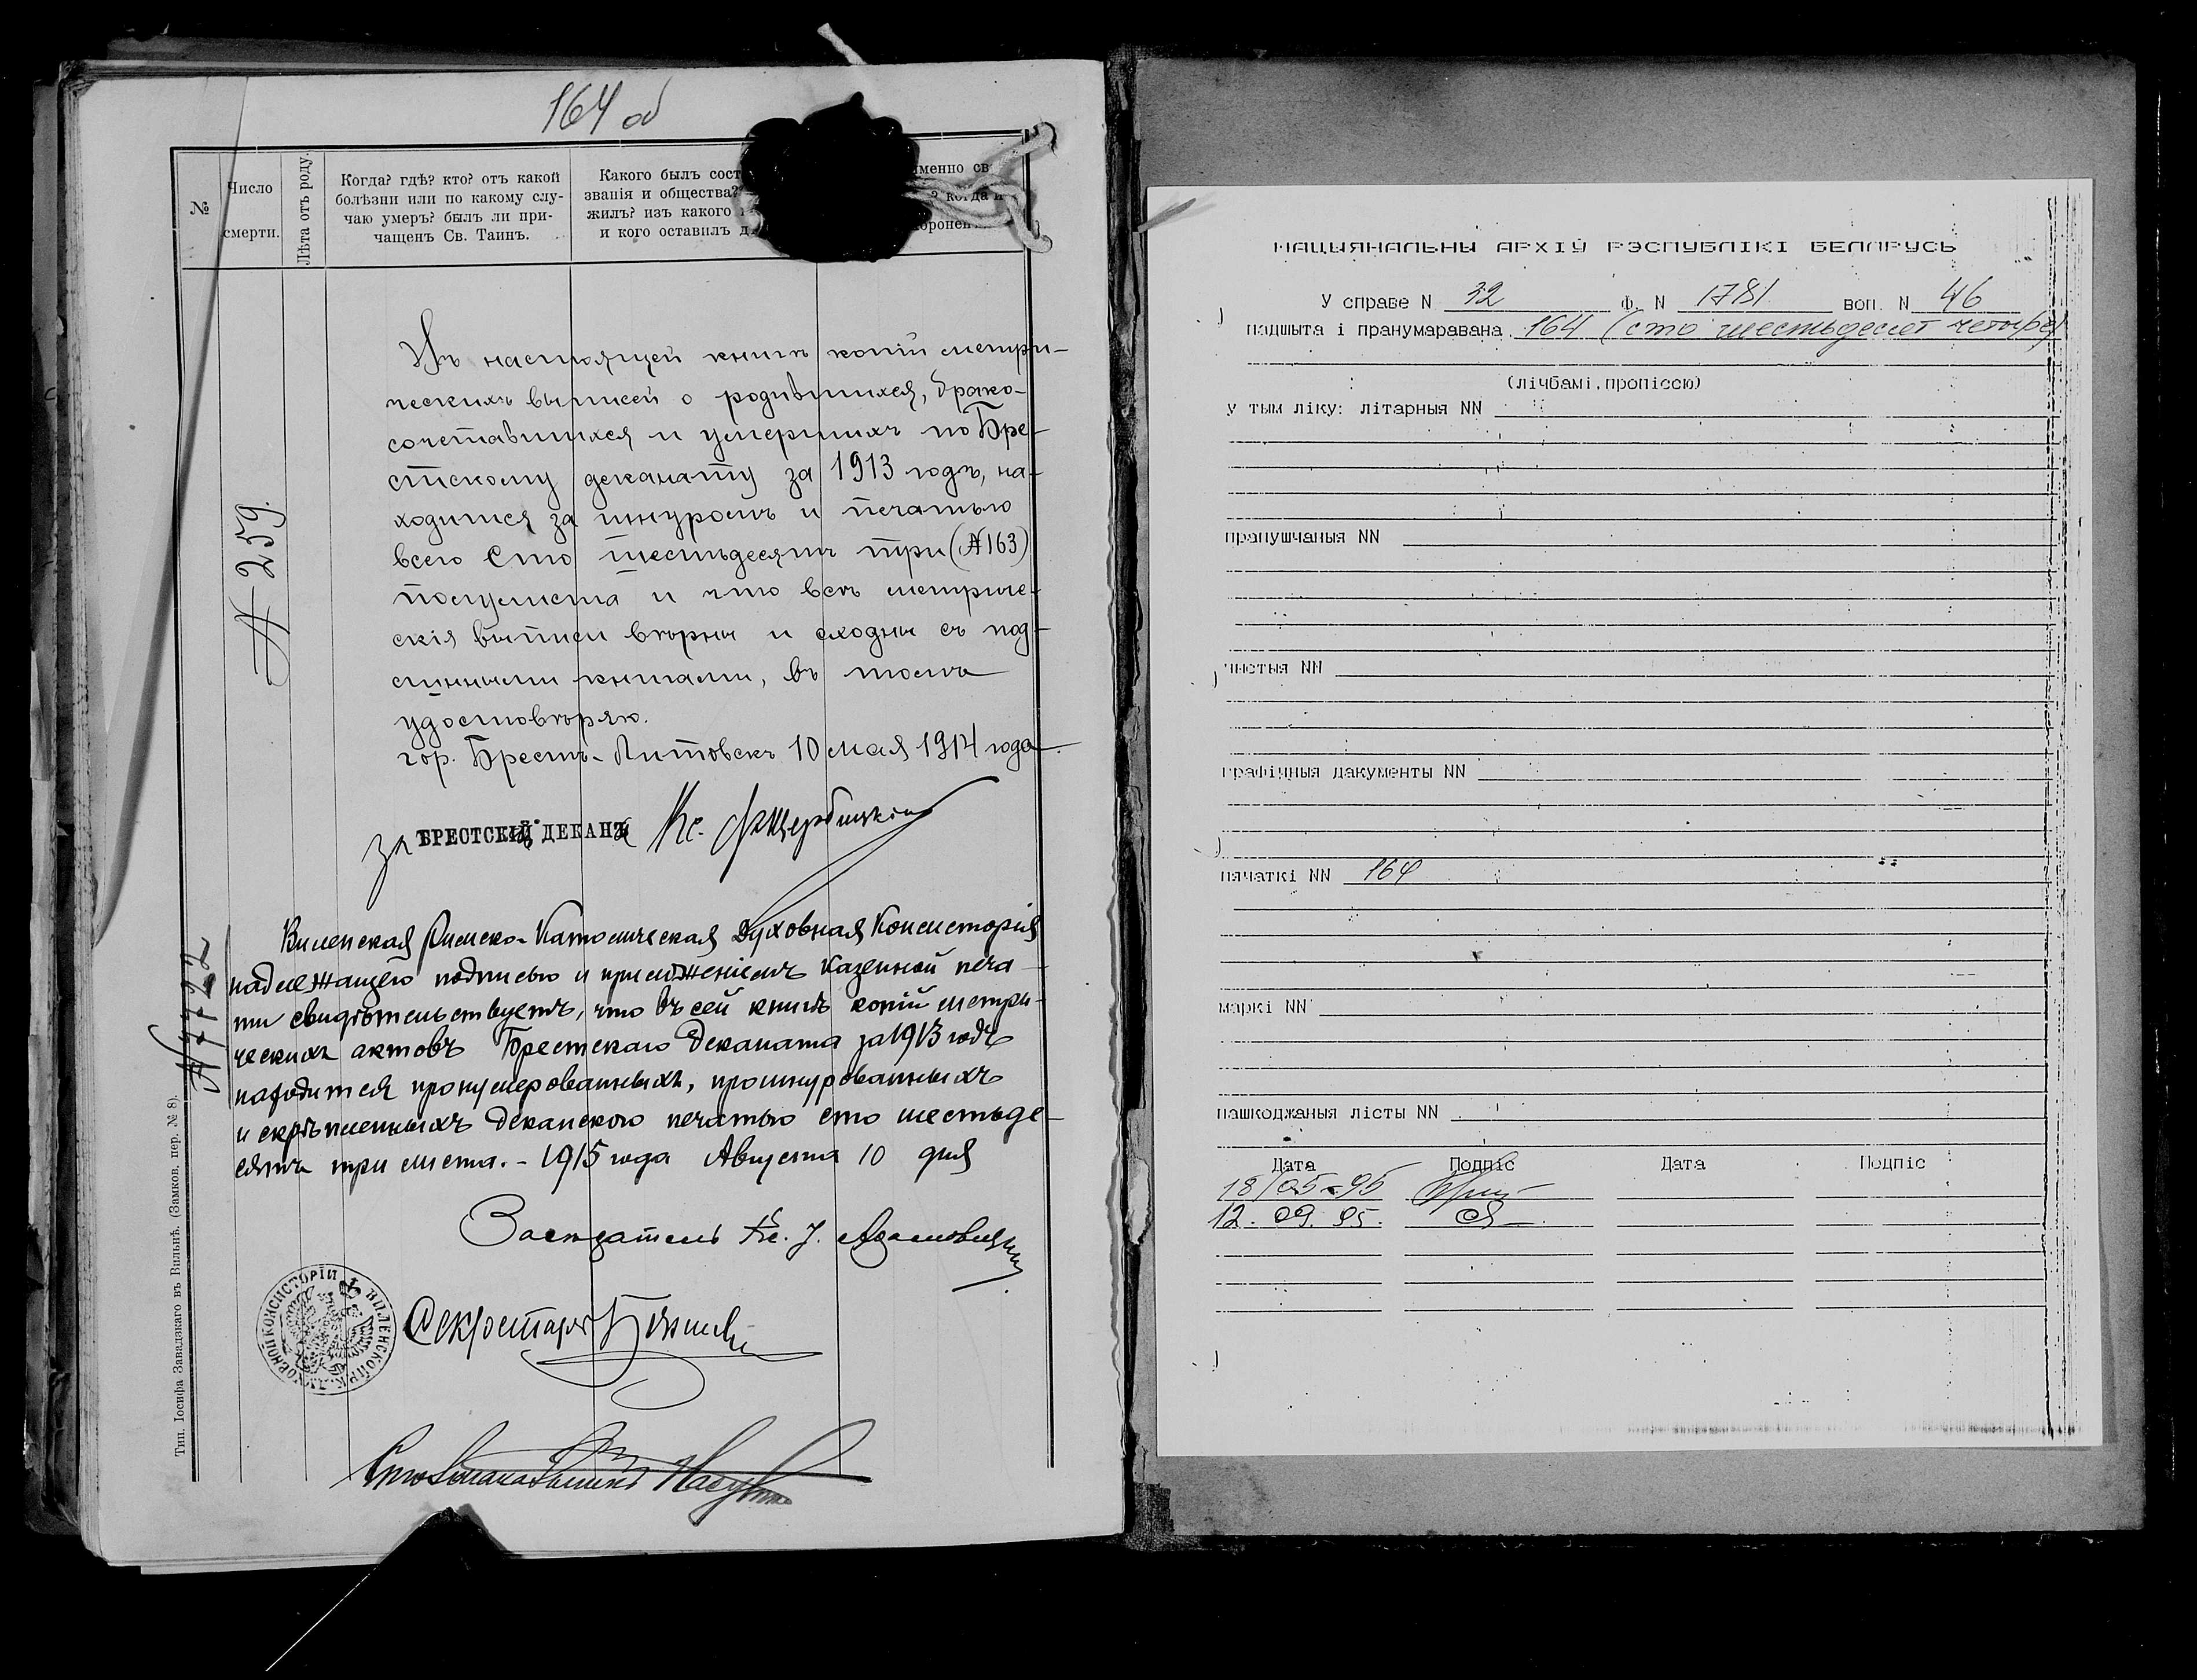 164 об
№
Число
смерти.
Лѣта отъ роду.
Когда? гдѣ? кто? отъ какой
болѣзни или по какому слу-
чаю умеръ? былъ ли при-
чащенъ Св. Таинъ.
Какого былъ сост
званія и общества?
жилъ? изъ какого
и кого оставилъ д
именно св
? когда и
хоронен
Въ настоящей книгѣ копій метри-
ческихъ выписей о родившихся, брако-
сочетавшихся и умершихъ по Бре-
стскому деканату за 1913 годъ, на-
ходится за шнуромъ и печатью
всего Сто шестьдесятъ три (№163)
полулиста и что всѣ метриче-
скія выписи вѣрны и сходны съ под-
линными книгами, въ томъ
удостовѣряю.
гор. Брестъ-Литовскъ 10 мая 1914 года.
№ 259
за БРЕСТСКІЙ ДЕКАНЪ Кс.
Виленская Римско-Католическая Духовная Консисторія
надлежащею подписью и приложеніемъ казенной печа-
ти свидѣтельствуетъ, что въ сей книгѣ копій метри-
ческихъ актовъ Брестскаго Деканата за 1913 годъ
находится пронумерованныхъ, прошнурованныхъ
и скрѣпленныхъ деканскою печатью сто шестьде-
сятъ три листа. - 1915 года Августа 10 дня
№ 7722
Засѣдатель Кс. J.
Секретарь
ВИЛЕНСКОЙ Р.К. ДУХОВНОЙ КОНСИСТОРІИ
Столоначальникъ
Тип. Іосифа Завадзкаго въ Вильнѣ. (Замков. пер. № 8).
НАЦЫЯНАЛЬНЫ АРХІЎ РЭСПУБЛІКІ БЕЛАРУСЬ
У справе N 32 Ф. N 1781 воп. N 46
падшыта і пранумаравана 164 (сто шестьдесят четыре)
(лічбамі, пропіссю)
у тым ліку: літарныя NN
прапушчаныя NN
чыстыя NN
графічныя дакументы NN
пячаткі NN 164
маркі NN
пашкоджаныя лісты NN
Дата Подпіс Дата Подпіс
18/05-95
12. 09. 95.